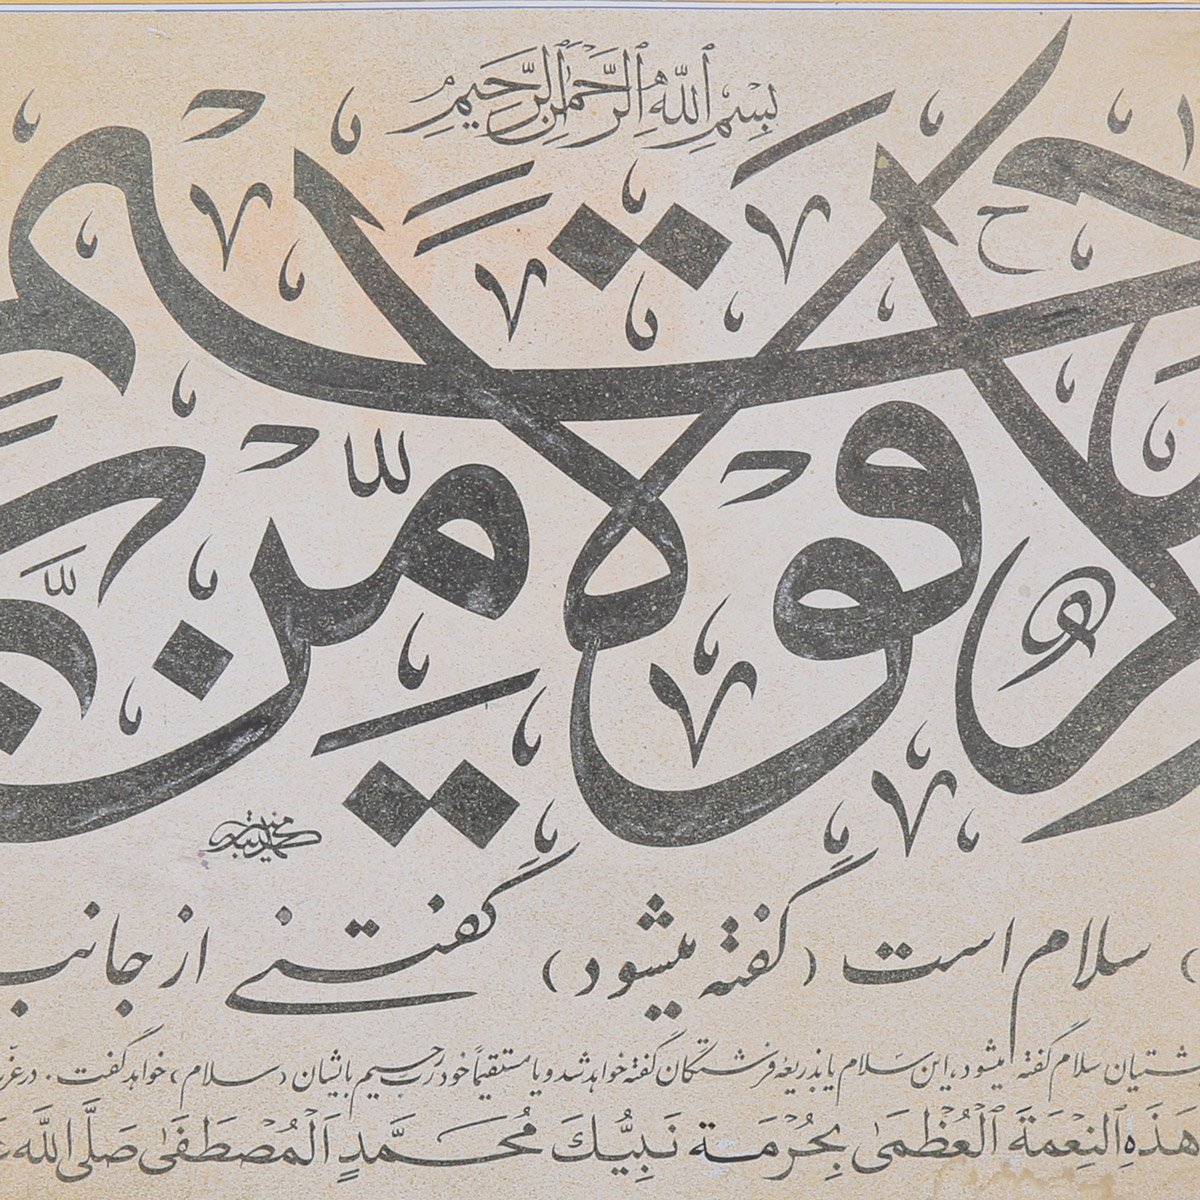 بِسْمِ ٱللَّهِ ٱلرَّحْمَٰنِ ٱلرَّحِيمِ
قَوْلًا مِّن
سلام است (گفته میشود) گفتنی از جانب
شتیان سلام گفته میشود، این سلام یا بذریعهٔ فرشتگان گفته خواهد شد و یا مستقیماً خود رب رحیم بایشان (سلام) خواهد گفت. در
هَذِهِ ٱلنِعمَةَ ٱلْعُظْمَىٰ بِحُرْمَةِ نَبِيِّكَ مُحَمَّدٍ ٱلْمُصْطَفَىٰ صَلَّى اللَّه